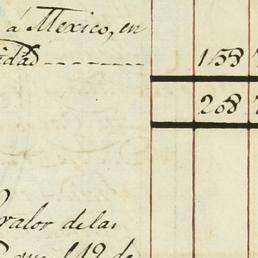 á Mexico, en
idad -------- 153
208
valor de las
que l 19 de